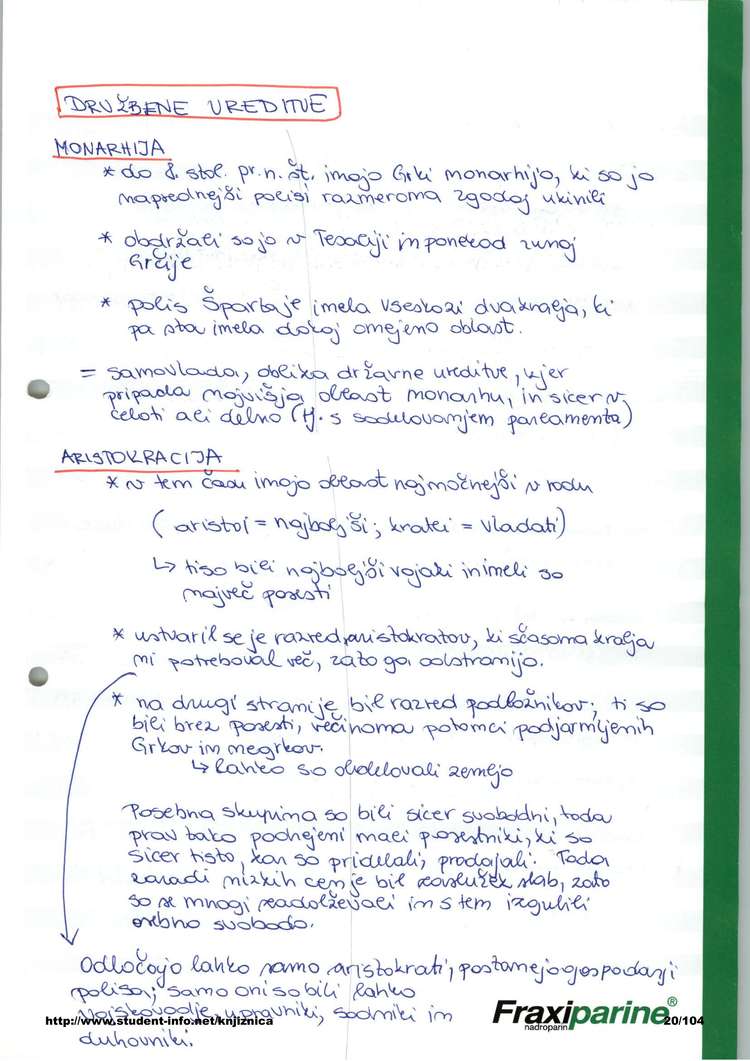 DRUŽBENE UREDITVE
MONARHIJA
* do 8. stol. pr. n. št. imajo Grki monarhijo, ki so jo
naprednejši polisi razmeroma zgodaj ukinili
* obdržali so jo v Tesaliji in ponekod zunaj
Grčije
* polis Šparta je imela vseskozi dva kralja, ki
pa sta imela dokaj omejeno oblast.
= samovlada, oblika državne ureditve, kjer
pripada najvišja oblast monarhu, in sicer v
celoti ali delno (tj. s sodelovanjem parlamenta)
ARISTOKRACIJA
* v tem času imajo oblast najmočnejši v rodu
(aristoi = najboljši; kratei = vladati)
↳ ti so bili najboljši vojaki in imeli so
največ posesti
* ustvaril se je razred aristokratov, ki sčasoma kralja
ni potreboval več, zato ga odstranijo.
* na drugi strani je bil razred podložnikov; ti so
bili brez posesti, večinoma potomci podjarmljenih
Grkov in negrkov.
↳ lahko so obdelovali zemljo
Posebna skupina so bili sicer svobodni, toda
prav tako podrejeni mali posestniki, ki so
sicer tisto, kar so pridelali, prodajali. Toda
zaradi nizkih cen je bil zaslužek slab, zato
so se mnogi zadolževali in s tem izgubili
osebno svobodo.
Odločajo lahko samo aristokrati, postanejo gospodarji
polisa; samo oni so bili lahko
vojskovodje, upravniki, sodniki in
duhovniki.
http://www.student-info.net/knjiznica
Fraxiparine®
nadroparin
20/104